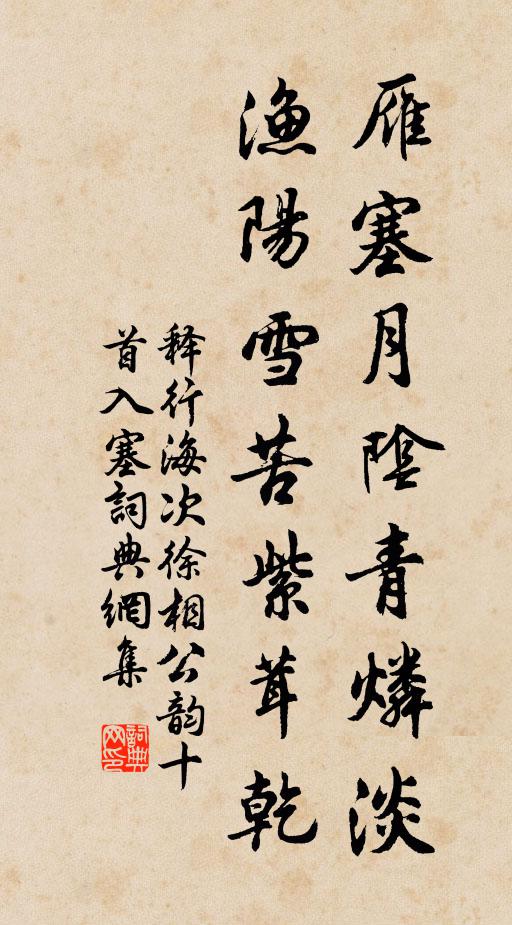 雁塞月陰青燐淡
漁陽雪苦紫茸乾
释行海次徐相公韵十
首入塞詞典網集
詞典网印